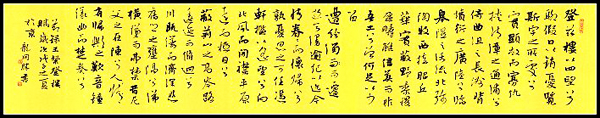 登茲樓以四望兮
聊暇日以銷憂覽
斯宇之所處兮
實顯敞而寡仇
挾清漳之通浦兮
倚曲沮之長洲背
墳衍之廣陸兮臨
皋隰之沃流北彌
陶牧西接昭丘
華實蔽野黍稷
盈疇雖信美而非
吾土兮曾何足以少留
遭紛濁而遷逝
兮漫踰紀以迄今
情眷眷而懷歸兮
孰憂思之可任憑
軒檻以遙望兮向
北風而開襟平原
遠而極目兮
蔽荊山之高岑路
逶迤而修迥兮
川既漾而濟深悲
舊鄉之壅隔兮涕
橫墜而弗禁昔尼
父之在陳兮
有歸歟之歎音鍾
儀幽而楚奏兮
王粲登樓
賦歲次
書